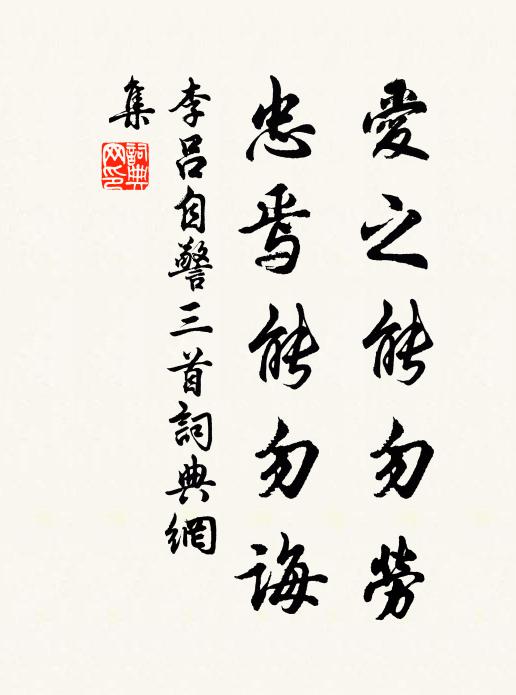 愛之能勿勞
忠焉能勿誨
李呂自警三首詞典網
集
詞典网印